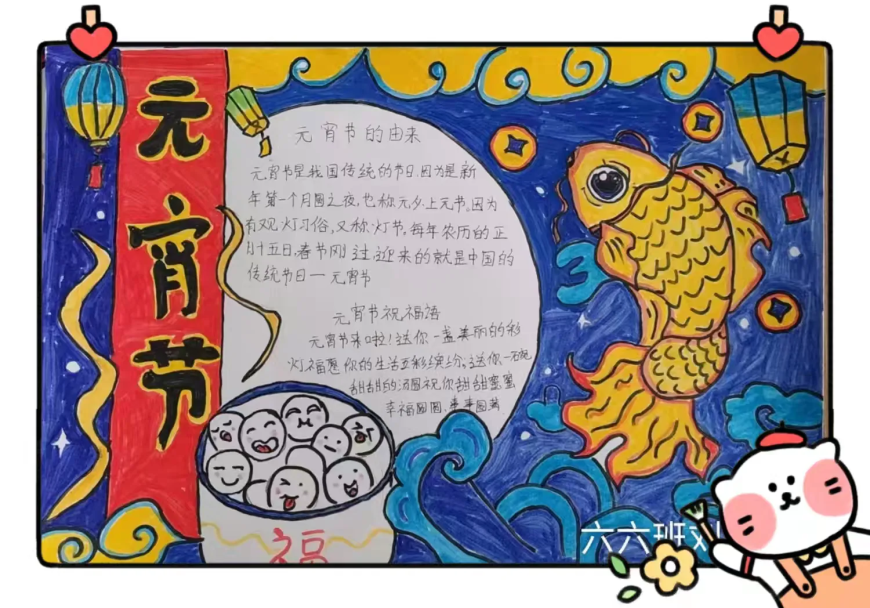 元宵节
元宵节的由来
元宵节是我国传统的节日.因为是新
年第一个月圆之夜,也称元夕,上元节,因为
有观灯习俗,又称灯节,每年农历的正
月十五日,春节刚过,迎来的就是中国的
传统节日一元宵节
元宵节祝福语
元宵节来啦!送你一盏美丽的彩
灯福愿你的生活五彩缤纷;送你一碗
甜甜的汤圆祝你甜甜蜜蜜
幸福圆圆、事事圆满
福
六六班刘